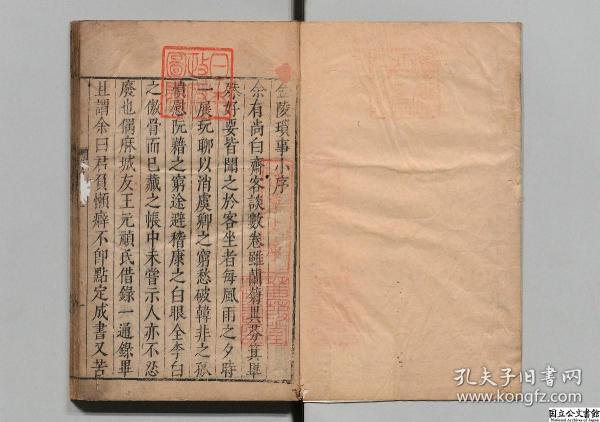 金陵瑣事小序
余有尚白齋客談數卷雖蘭菊異芬其畢
殊好要皆聞之於客坐者每風雨之夕時
一展玩聊以消虞卿之窮愁破韓非之孤
憤慰阮藉之窮途避嵇康之白眼全李白
之傲骨而已藏之帳中未嘗示人亦不忍
廢也偶麻城友王元禎氏借錄一通錄畢
且謂余曰君負懶癖不即點定成書又苦
孔夫子旧书网
www.kongfz.com
国立公文書館
National Archives of Japan